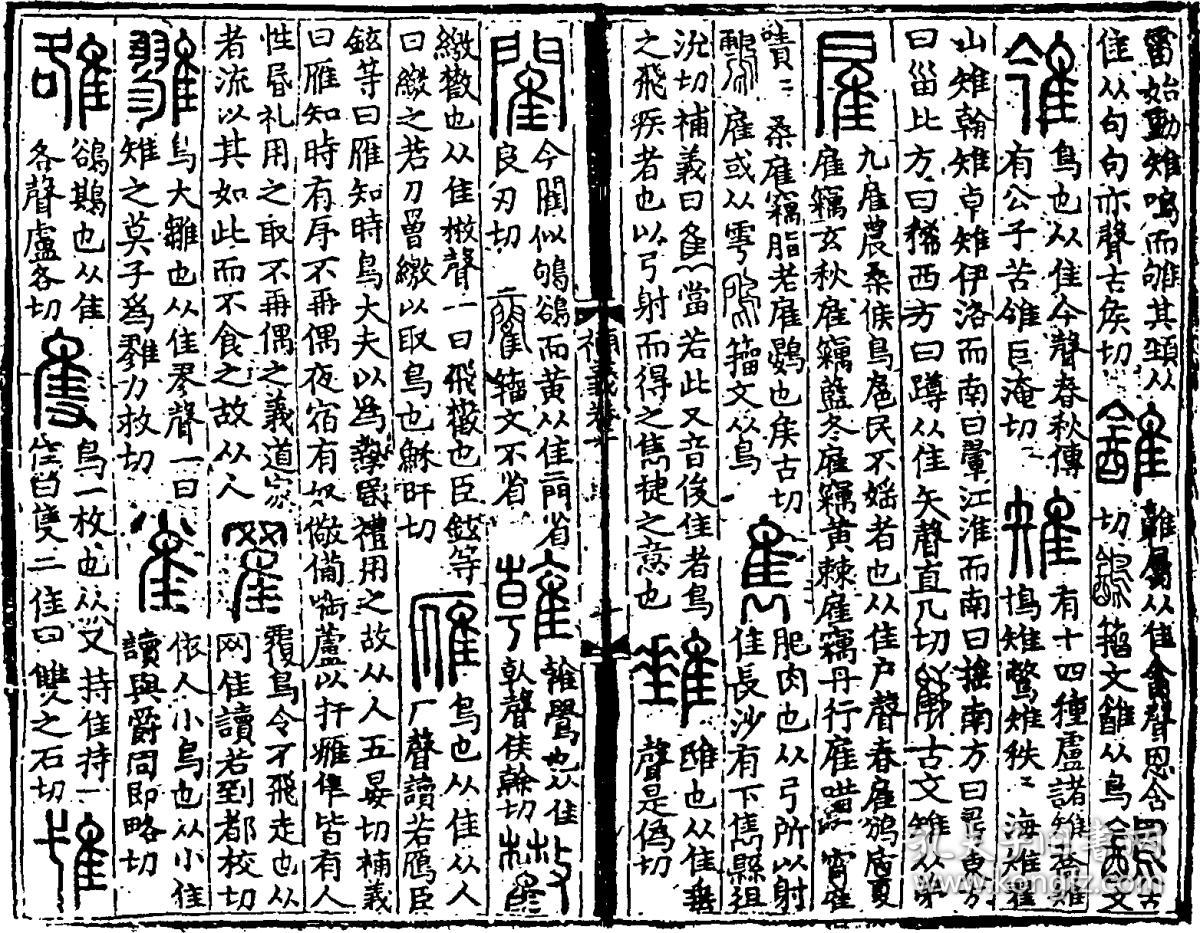 雷始動雉鳴而雊其頸从
隹从句句亦聲古矦切 雜屬从隹酓聲恩含
切 籒文䧹从鳥
鳥也从隹今聲春秋傳
有公子苦雂巨淹切 雉 有十四種盧諸雉
鳪雉鷩雉秩秩海雉
山雉翰雉卓雉伊洛而南曰翬江淮而南曰搖南方曰𠷎東方
曰甾北方曰稀西方曰蹲从隹矢聲直几切 古文雉从弟
雇 九雇農桑候鳥扈民不婬者也从隹户聲春雇鳻盾夏
雇竊玄秋雇竊藍冬雇竊黄棘雇竊丹行雇唶唶宵雇
嘖嘖桑雇竊脂老雇鷃也矦古切
雇或从雩 籒文从鳥
雋 肥肉也从弓所以射
隹長沙有下雋縣徂
沇切補義曰雋當若此又音俊隹者鳥
之飛疾者也以弓射而得之雋捷之意也
雖 鴟也从隹垂
聲是僞切
補義卷十
閵 今閵似鴝鵒而黄从隹䦒省
良刃切 籒文不省
雗 雗鷽也从隹
倝聲矦幹切
繳㪔也从隹㪔聲一曰飛㪔也臣鉉等
曰繳之若刀曾繳以取鳥也穌旰切
雁 鳥也从隹从人
厂聲讀若鴈臣
鉉等曰雁知時鳥大夫以爲摯昬禮用之故从人五晏切補義
曰雁知時有序不再偶夜宿有奴儆備啣蘆以扞雁隼皆有人
性昬礼用之取不再偶之義道家
者流以其如此而不食之故从人
䍜 覆鳥令不飛走也从
网隹讀若到都校切
鳥大雛也从隹翏聲一曰
雉之莫子爲雡力救切
雀 依人小鳥也从小隹
讀與爵同即略切
雒 鵒鵙也从隹
各聲盧各切
隻 鳥一枚也从又持隹持一
隹曰隻二隹曰雙之石切